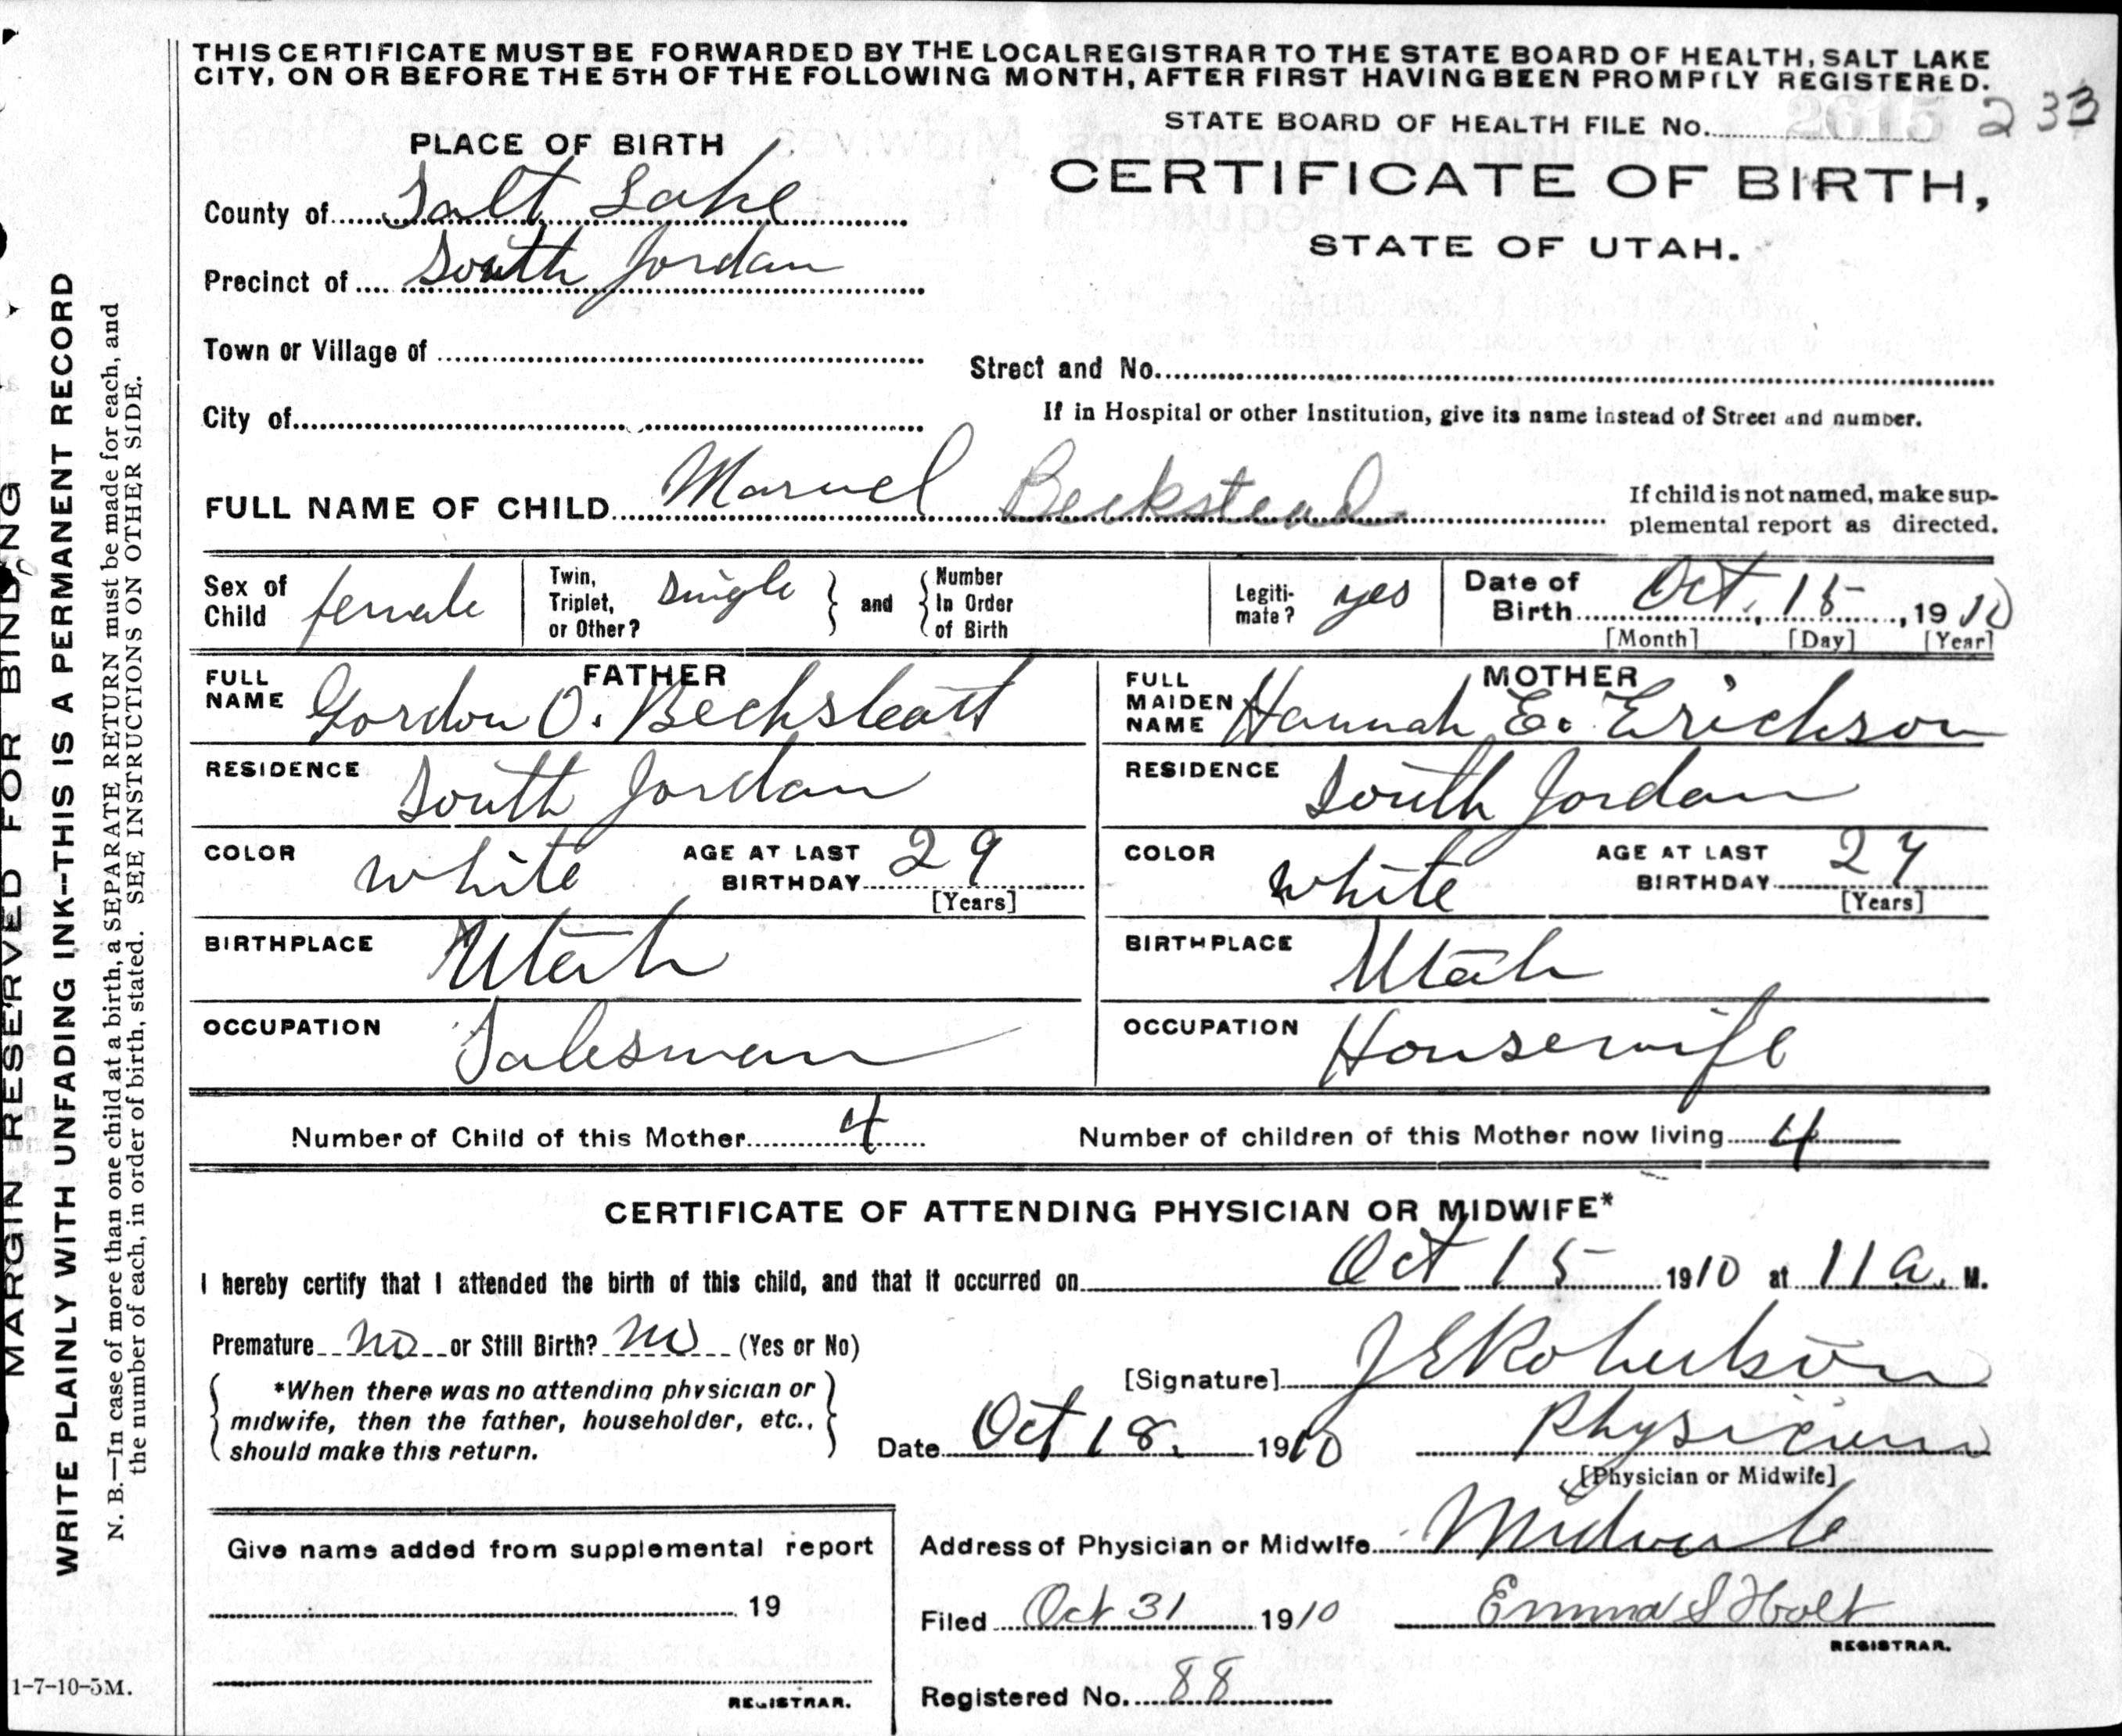 THIS CERTIFICATE MUST BE FORWARDED BY THE LOCAL REGISTRAR TO THE STATE BOARD OF HEALTH, SALT LAKE
CITY, ON OR BEFORE THE 5TH OF THE FOLLOWING MONTH, AFTER FIRST HAVING BEEN PROMPTLY REGISTERED.
STATE BOARD OF HEALTH FILE No. 233
PLACE OF BIRTH
CERTIFICATE OF BIRTH,
STATE OF UTAH.
County of Salt Lake
Precinct of South Jordan
Town or Village of
Street and No.
City of
If in Hospital or other Institution, give its name instead of Street and number.
FULL NAME OF CHILD Marvel Beckstead
If child is not named, make sup-
plemental report as directed.
Sex of Child female
Twin, Triplet, or Other? Single
and
Number In Order of Birth
Legiti-mate? yes
Date of Birth Oct. 15, 1910
[Month] [Day] [Year]
FATHER
FULL NAME Gordon O. Becksteatt
MOTHER
FULL MAIDEN NAME Hannah E. Erickson
RESIDENCE South Jordan
RESIDENCE South Jordan
COLOR white AGE AT LAST BIRTHDAY 29
[Years]
COLOR white AGE AT LAST BIRTHDAY 27
[Years]
BIRTHPLACE Utah
BIRTHPLACE Utah
OCCUPATION Salesman
OCCUPATION Housewife
Number of Child of this Mother 4
Number of children of this Mother now living 4
CERTIFICATE OF ATTENDING PHYSICIAN OR MIDWIFE*
I hereby certify that I attended the birth of this child, and that it occurred on Oct 15 1910 at 11 a. M.
Premature no or Still Birth? no (Yes or No)
*When there was no attending physician or
midwife, then the father, householder, etc.,
should make this return.
[Signature] J E Robertson
Date Oct 18. 1910
Physician
[Physician or Midwife]
Address of Physician or Midwife Midvale
Give name added from supplemental report
19
REGISTRAR.
Filed Oct 31 1910 Emma S Holt
REGISTRAR.
Registered No. 88
MARGIN RESERVED FOR BINDING
WRITE PLAINLY WITH UNFADING INK--THIS IS A PERMANENT RECORD
N. B.—In case of more than one child at a birth, a SEPARATE RETURN must be made for each, and
the number of each, in order of birth, stated. SEE INSTRUCTIONS ON OTHER SIDE.
1-7-10-5M.